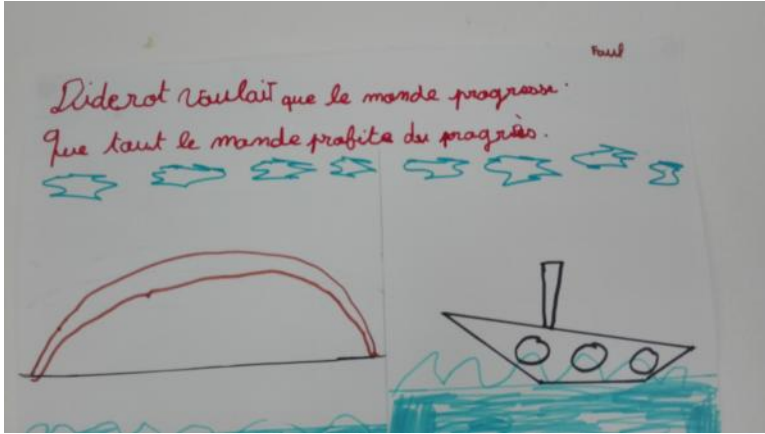 Paul
Diderot voulait que le monde progresse.
Que tout le monde profite du progrès.